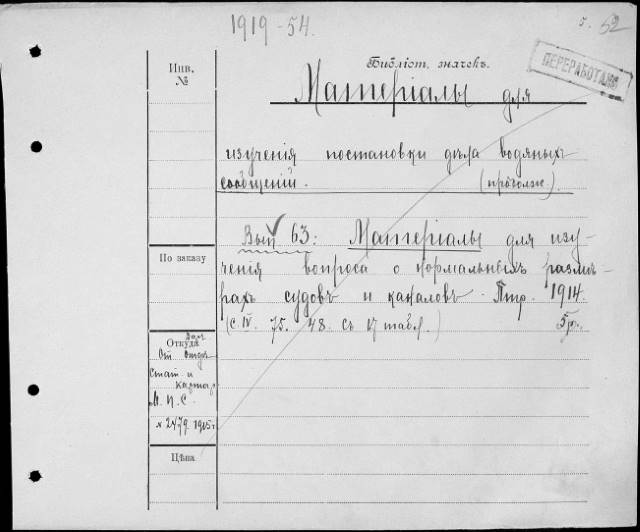 1919-54.
5. 52
ПЕРЕРАБОТАНО
Инв.
№
Библіот. значекъ.
Матеріалы для
изученія постановки дѣла водяныхъ
сообщеній. (продолж.).
Вып 63: Матеріалы для изу-
ченія вопроса о нормальныхъ размѣ-
рахъ судовъ и каналовъ. Птр. 1914.
(с. IV. 75. 48. съ 17 табл.) 5 р.
По заказу
Откуда
От Отдѣ
Стат и
Картогр
М. П. С.
№ 2479. 1915 г
Цѣна